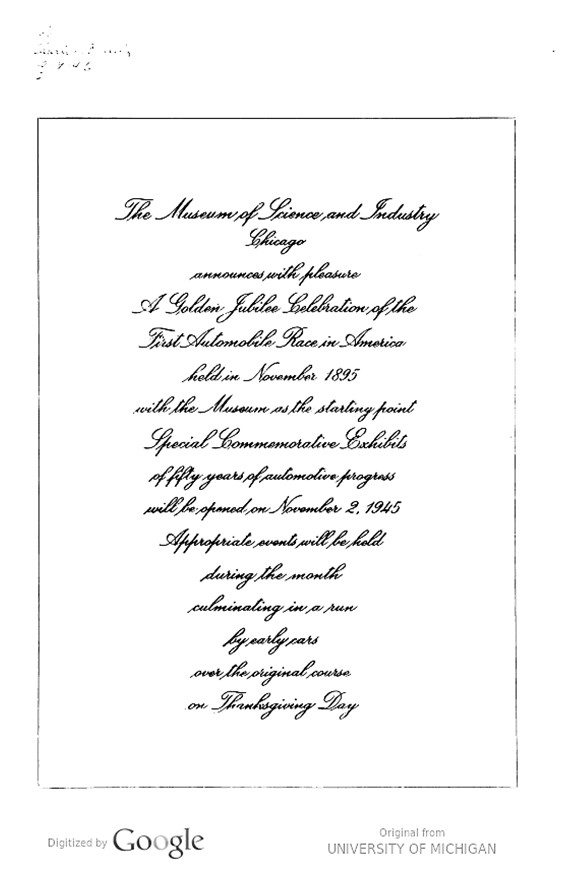 The Museum of Science and Industry
Chicago
announces with pleasure
A Golden Jubilee Celebration of the
First Automobile Race in America
held in November 1895
with the Museum as the starting point
Special Commemorative Exhibits
of fifty years of automotive progress
will be opened on November 2, 1945
Appropriate events will be held
during the month
culminating in a run
by early cars
over the original course
on Thanksgiving Day
Digitized by Google
Original from
UNIVERSITY OF MICHIGAN